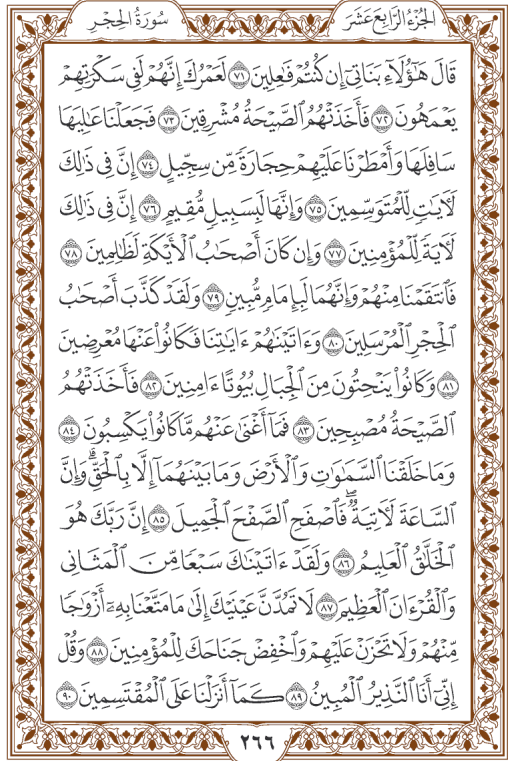 الجزء الرابع عشر
سورة الحجر
قَالَ هَٰٓؤُلَآءِ بَنَاتِىٓ إِن كُنتُمْ فَٰعِلِينَ ٧١ لَعَمْرُكَ إِنَّهُمْ لَفِى سَكْرَتِهِمْ
يَعْمَهُونَ ٧٢ فَأَخَذَتْهُمُ ٱلصَّيْحَةُ مُشْرِقِينَ ٧٣ فَجَعَلْنَا عَٰلِيَهَا
سَافِلَهَا وَأَمْطَرْنَا عَلَيْهِمْ حِجَارَةً مِّن سِجِّيلٍ ٧٤ إِنَّ فِى ذَٰلِكَ
لَءَايَٰتٍ لِّلْمُتَوَسِّمِينَ ٧٥ وَإِنَّهَا لَبِسَبِيلٍ مُّقِيمٍ ٧٦ إِنَّ فِى ذَٰلِكَ
لَءَايَةً لِّلْمُؤْمِنِينَ ٧٧ وَإِن كَانَ أَصْحَٰبُ ٱلْأَيْكَةِ لَظَٰلِمِينَ ٧٨
فَٱنتَقَمْنَا مِنْهُمْ وَإِنَّهُمَا لَبِإِمَامٍ مُّبِينٍ ٧٩ وَلَقَدْ كَذَّبَ أَصْحَٰبُ
ٱلْحِجْرِ ٱلْمُرْسَلِينَ ٨٠ وَءَاتَيْنَٰهُمْ ءَايَٰتِنَا فَكَانُوا۟ عَنْهَا مُعْرِضِينَ
٨١ وَكَانُوا۟ يَنْحِتُونَ مِنَ ٱلْجِبَالِ بُيُوتًا ءَامِنِينَ ٨٢ فَأَخَذَتْهُمُ
ٱلصَّيْحَةُ مُصْبِحِينَ ٨٣ فَمَآ أَغْنَىٰ عَنْهُم مَّا كَانُوا۟ يَكْسِبُونَ ٨٤
وَمَا خَلَقْنَا ٱلسَّمَٰوَٰتِ وَٱلْأَرْضَ وَمَا بَيْنَهُمَآ إِلَّا بِٱلْحَقِّ ۗ وَإِنَّ
ٱلسَّاعَةَ لَءَاتِيَةٌ ۖ فَٱصْفَحِ ٱلصَّفْحَ ٱلْجَمِيلَ ٨٥ إِنَّ رَبَّكَ هُوَ
ٱلْخَلَّٰقُ ٱلْعَلِيمُ ٨٦ وَلَقَدْ ءَاتَيْنَٰكَ سَبْعًا مِّنَ ٱلْمَثَانِى
وَٱلْقُرْءَانَ ٱلْعَظِيمَ ٨٧ لَا تَمُدَّنَّ عَيْنَيْكَ إِلَىٰ مَا مَتَّعْنَا بِهِۦٓ أَزْوَٰجًا
مِّنْهُمْ وَلَا تَحْزَنْ عَلَيْهِمْ وَٱخْفِضْ جَنَاحَكَ لِلْمُؤْمِنِينَ ٨٨ وَقُلْ
إِنِّىٓ أَنَا ٱلنَّذِيرُ ٱلْمُبِينُ ٨٩ كَمَآ أَنزَلْنَا عَلَى ٱلْمُقْتَسِمِينَ ٩٠
٢٦٦